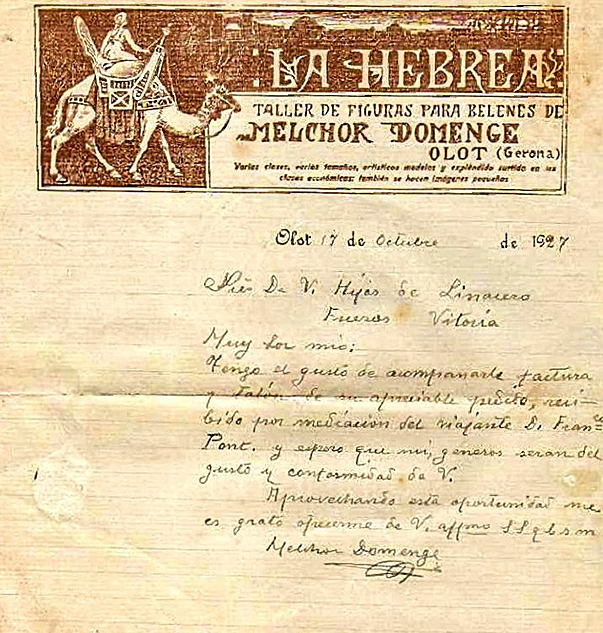 LA HEBREA
TALLER DE FIGURAS PARA BELENES DE
MELCHOR DOMENGE
OLOT (Gerona)
Varias clases, varios tamaños, artísticos modelos y espléndido surtido en las
clases económicas; también se hacen imágenes pequeñas
Olot 17 de Octubre de 1927
De V. Hijos de Linacero
Fueros Vitoria
Muy Sor mio:
Tengo el gusto de acompañarle factura
y talón de su apreciable pedido, reci-
bido por mediación del viajante D. Franco
Pont. y espero que mis generos seran del
gusto y conformidad de V.
Aprovechando esta oportunidad me
es grato ofrecerme de V. affmo S S q b s m
Melchor Domenge